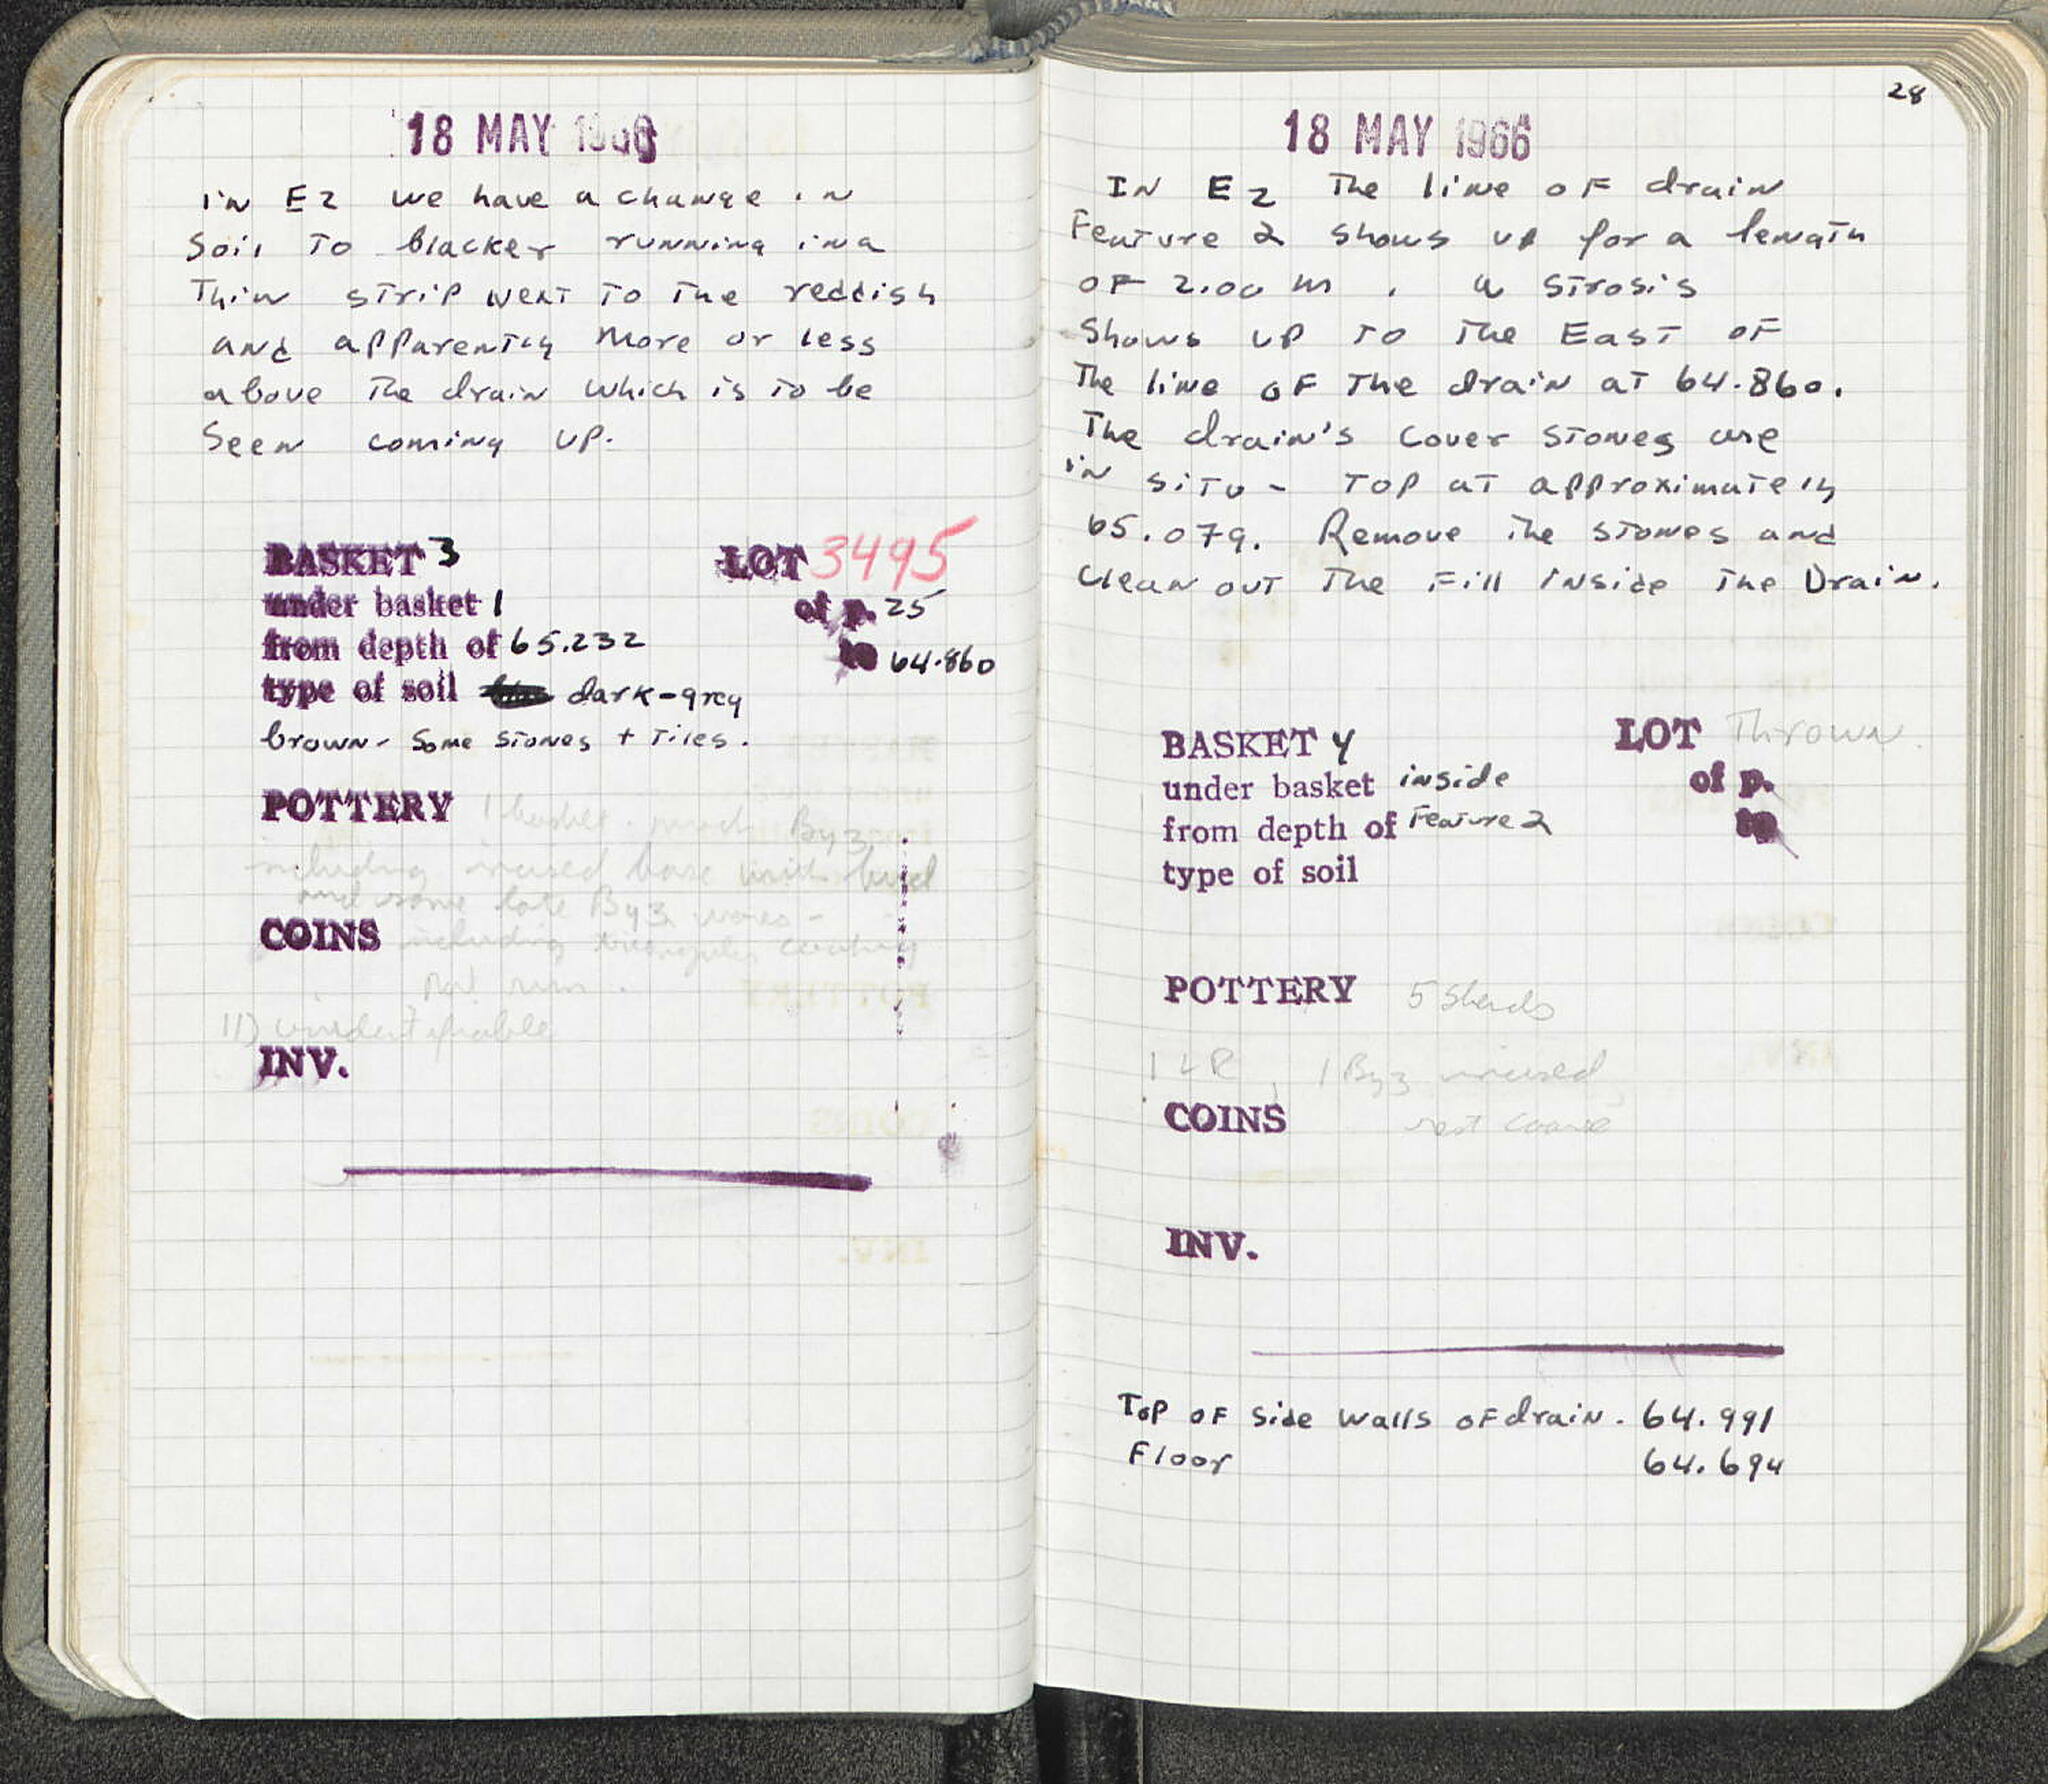 18 MAY 1966
in E2 we have a change in
Soil to blacker running in a
Thin strip next to the reddish
and apparently more or less
above the drain which is to be
seen coming up.
BASKET 3 LOT 3495
under basket 1 of p. 25
from depth of 65.232 to 64.860
type of soil dark-grey
brown - some stones + tiles.
POTTERY 1 basket. much Byz
including incised base with bird
and some late Byz wares -
COINS including triangular cooking
pot rim.
11) unidentifiable
INV.
28
18 MAY 1966
In E2 the line of drain
Feature 2 shows up for a length
of 2.00 m. a strosis
shows up to the East of
The line of the drain at 64.860.
The drain's cover stones are
in situ - top at approximately
65.079. Remove the stones and
clean out the fill inside the Drain.
BASKET 4 LOT Thrown
under basket inside of p.
from depth of Feature 2 to
type of soil
POTTERY 5 sherds
1 LR, 1 Byz incised
COINS rest coarse
INV.
Top of side walls of drain. 64.991
Floor 64.694